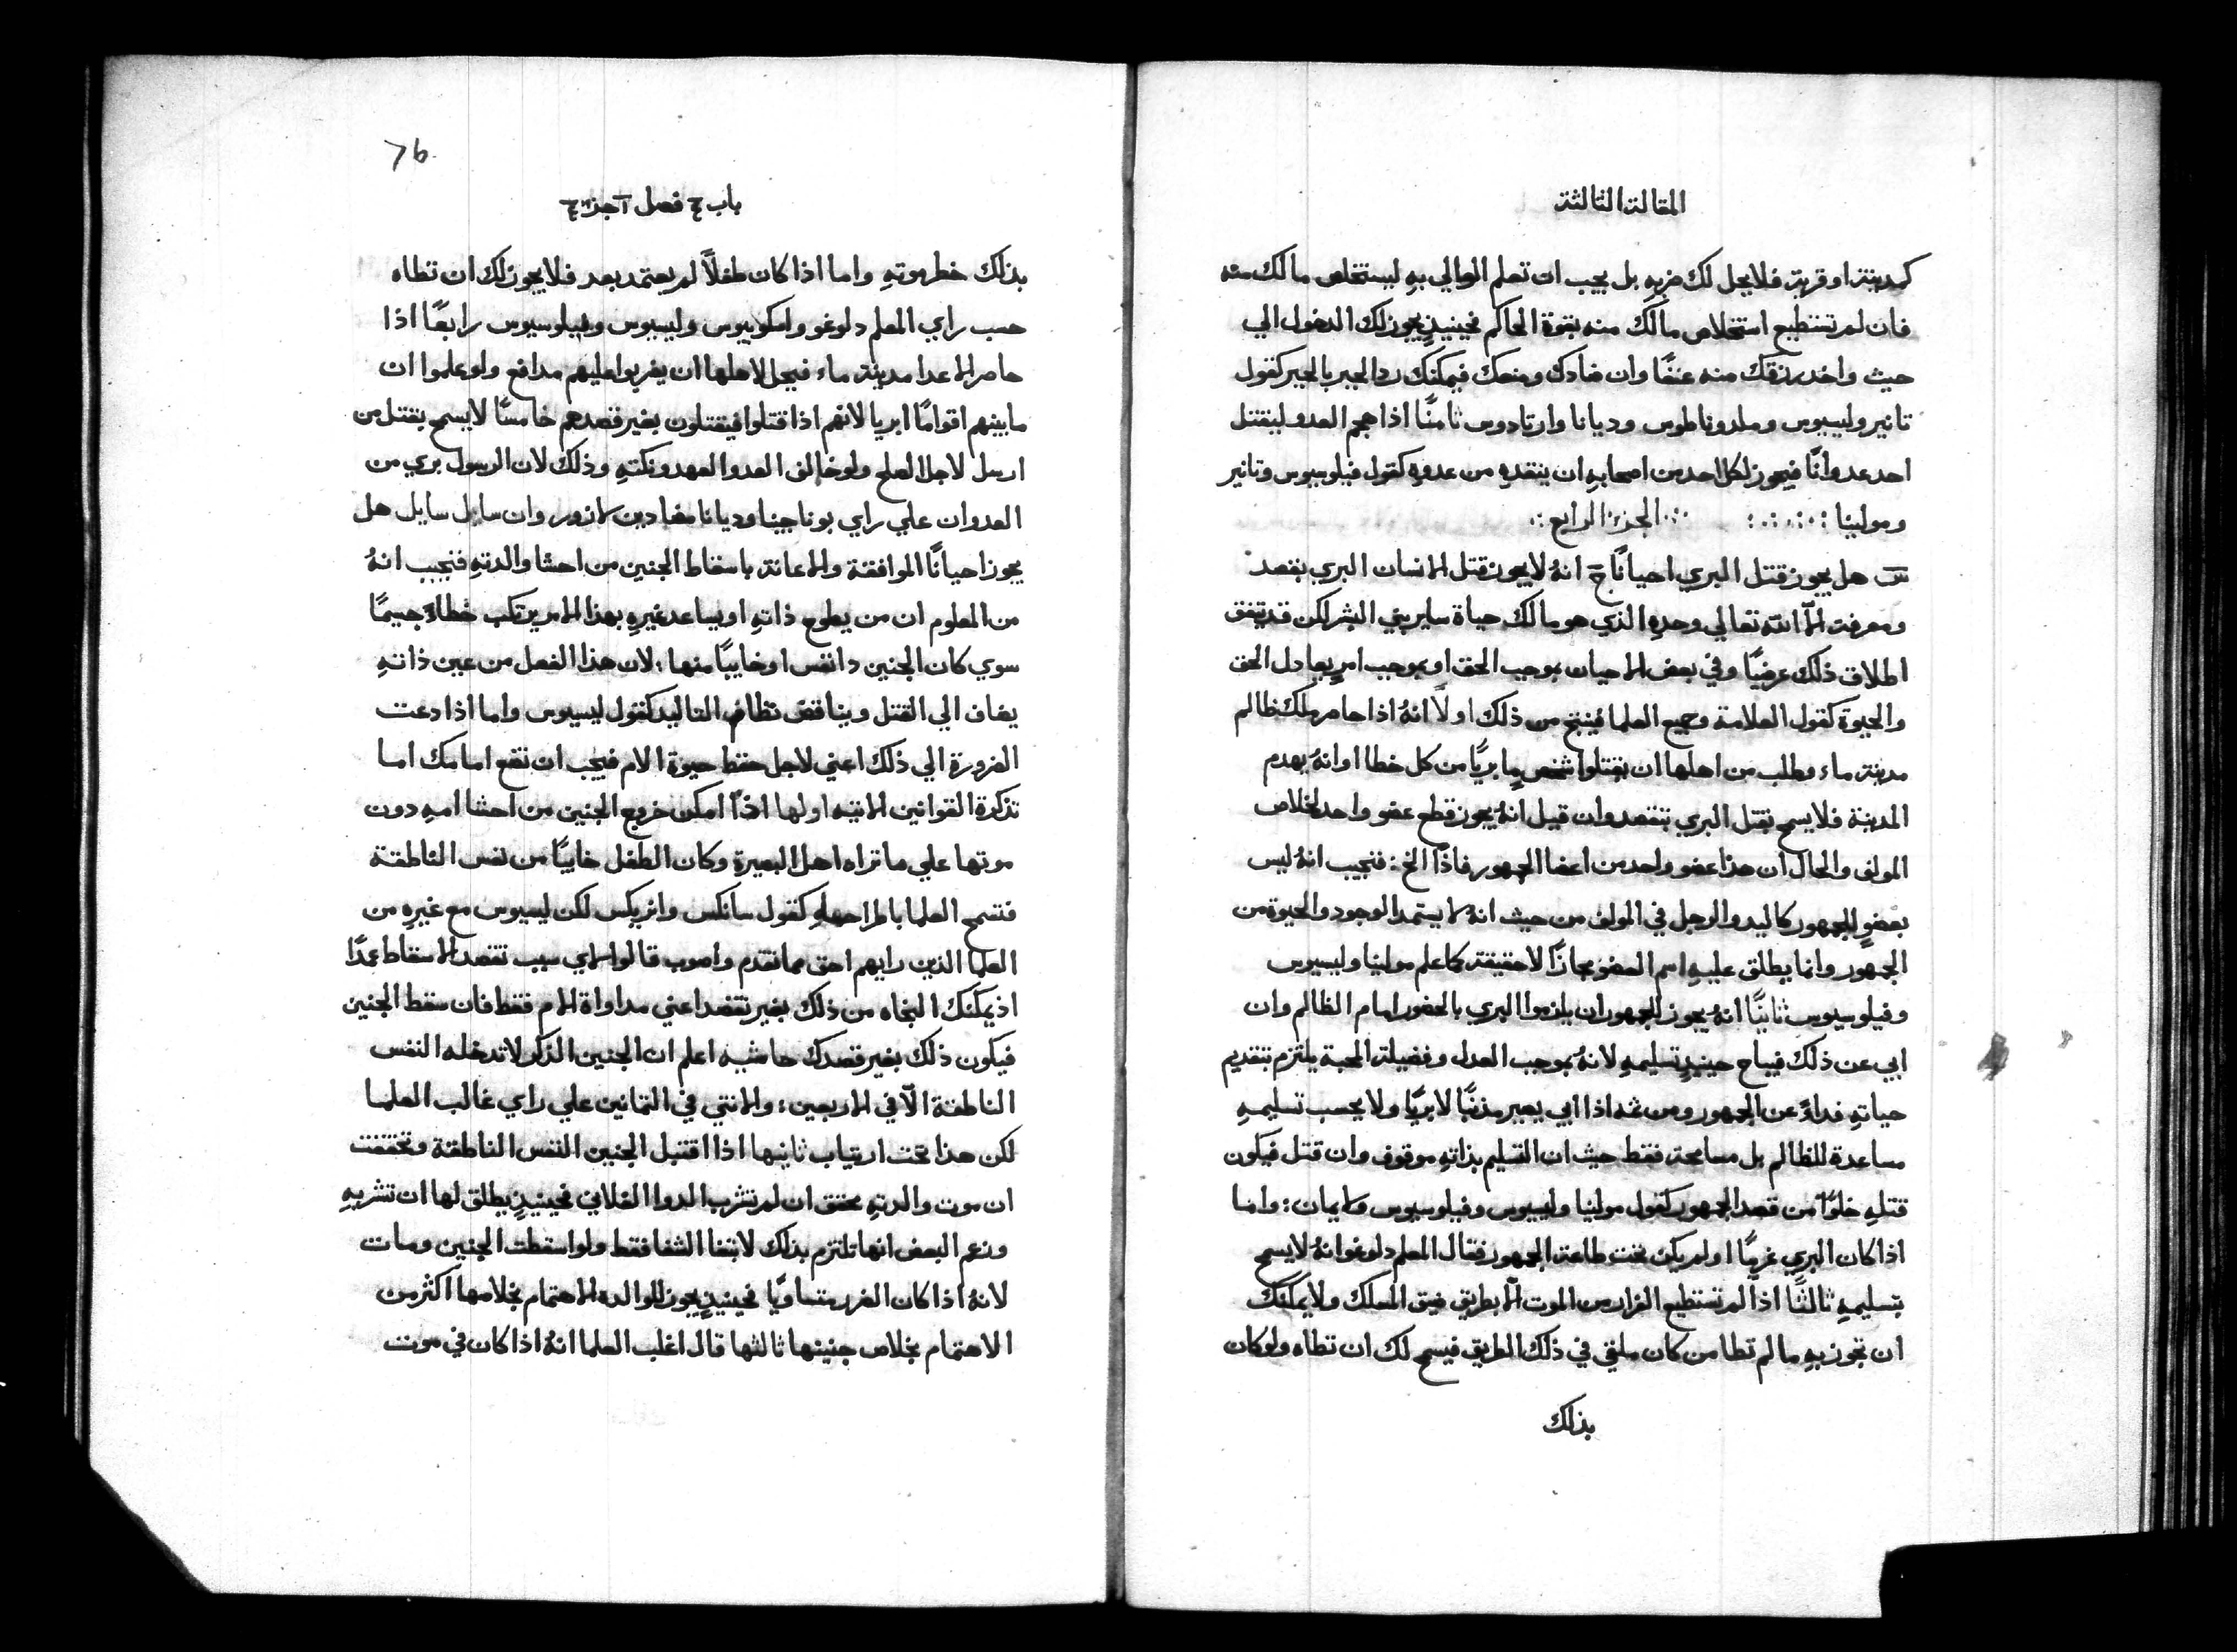 المقالة الثالثة
كمدينة او قرية فلا يحل لك ضربه بل يجب ان تعلم الوالي به ليستخلص مالك منه
فان لم تستطيع استخلاص مالك منه بقوة الحاكم فحينيذٍ يجوز لك الدخول الي
حيث واخد رزقك منه عنفًا وان ضادك ومنعك فيمكنك رد الجبر بالجبر كقول
تانير وليسيوس وملدوناطوس وديانا وارتادوس ثامنًا اذا هجم العدو ليقتل
احد عدوانًا فيجوز لكل احد من اصحابه ان ينقده من عدوه كقول فيلوسيوس وتانير
ومولينا الجزء الرابع
س هل يجوز قتل البري احيانًا ج انهُ لا يجوز قتل الانسان البري بقصد
ومعرفة الّا الله تعالي وحده الذي هو مالك حياة ساير بني البشر لكن قد يتفق
اطلاق ذلك عرضيًا وفي بعض الاحيان بموجب الحق او بموجب امرٍ يعادل الحق
والحيوة كقول العلامة وجميع العلما فينتج من ذلك اولًا انهُ اذا حاصر ملك ظالم
مدينة ماء وطلب من اهلها ان يقتلوا شخصٍ ما بريًا من كل خطا او انهُ يهدم
المدينة فلا يسمح بقتل البري بتقصد وان قيل انهُ يجوز قطع عضو واحد لخلاص
المولف والحال ان هذا عضو واحد من اعضا الجمهور فاذًا الخ: فنجيب انهُ ليس
بعضوٍ للجمهور كاليد والرجل في المولف من حيث انهُ لا يستمد الوجود والحيوة من
الجمهور وانما يطلق عليه اسم العضو مجازًا لا حقيقة كما علم مولينا وليسيوس
وفيلوسيوس ثانيًا انهُ يجوز للجمهور ان يلزموا البري بالحضور امام الظالم وان
ابي عن ذلك فيباح حينيذٍ تسليمه لانهُ بموجب العدل وفضيلة المحبة يلتزم بتقديم
حياته فداءً عن الجمهور ومن ثمه اذا ابي يصير مذنبًا لا بريًا ولا يحسب تسليمه
مساعدة للظالم بل مسامحة فقط حيث ان التسليم بذاته موقوف وان قتل فيكون
قتله خلوًا من قصد الجمهور كقول مولينا وليسيوس وفيلوسيوس ولايمان: واما
اذا كان البري غريبًا اولم يكن تحت طاعة الجمهور فقال المعلم دلوغو انهُ لا يسمح
بتسليمه ثالثًا اذا لم تستطيع الفرار من الموت الّا بطريق ضيق المسلك ولا يمكنك
ان تجوز به ما لم تطا من كان ملقي في ذلك الطريق فيسمح لك ان تطاه ولو كان
بذلك
76
باب ج فصل آ جزء ج
بذلك خطر موته واما اذا كان طفلًا لم يعتمد بعد فلا يجوز لك ان تطاه
حسب راي المعلم دلوغو وامكوبيوس وليسيوس وفيلوسيوس رابعًا اذا
حاصر الاعدا مدينة ماء فيحل لاهلها ان يضربوا عليهم مدافع ولو علموا ان
ما بينهم اقوامًا ابريا لانهم اذا قتلوا فيقتلون بغير قصدهم خامسًا لا يسمح بقتل من
ارسل لاجل الصلح ولو خالف العدو العهد ونكته وذلك لان الرسول بري من
العدوان علي راي بوناجينا وديانا مضادين لازور وان سايل سايل هل
يجوز احيانًا الموافقة والاعانة باسقاط الجنين من احشا والدته فنجيب انهُ
من المعلوم ان من يطوع ذاته او يساعد غيره بهذا الامر يرتكب خطاءً جسيمًا
سوي كان الجنين دا نفس او خايبًا منها: لان هذا الفعل من عين ذاته
يضاف الي القتل ويناقض نظام التاليد كقول ليسيوس واما اذا دعت
الضرورة الي ذلك اعني لاجل حفظ حيوة الام فيجب ان تضع امامك اما
تذكرة القوانين الاتيه اولها اذا امكن خروج الجنين من احشا امه دون
موتها علي ما تراه اهل البصيرة وكان الطفل خايبًا من نفس الناطقة
فتسمح العلما باطراحه كقول سانكس وانريكس لكن ليسيوس مع غيره من
العلما الذين رايهم احق مما تقدم واصوب قالوا لاي سبب تقصد الاسقاط عمدًا
اذ يمكنك النجاه من ذلك بغير تقصد اعني مداواة الام فقط فان سقط الجنين
فيكون ذلك بغير قصدك حاشيه اعلم ان الجنين الذكر لا تدخله النفس
الناطقة الّا في الاربعين: والانتي في الثمانين علي راي غالب العلما
لكن هذا تحت ارتياب ثانيها اذا اقتبل الجنين النفس الناطقة وتحققت
ان موت والدته محقق ان لم تشرب الدوا الفلاني فحينيذٍ يطلق لها ان تشربه
وزعم البعض انها تلتزم بذلك لابتغا الشفا فقط ولو اسقطت الجنين ومات
لانهُ اذا كان الضرر متساويًا فحينيذٍ يجوز للوالده الاهتمام بخلاصها اكثر من
الاهتمام بخلاص جنينها ثالثها قال اغلب العلما انهُ اذا كان في موت